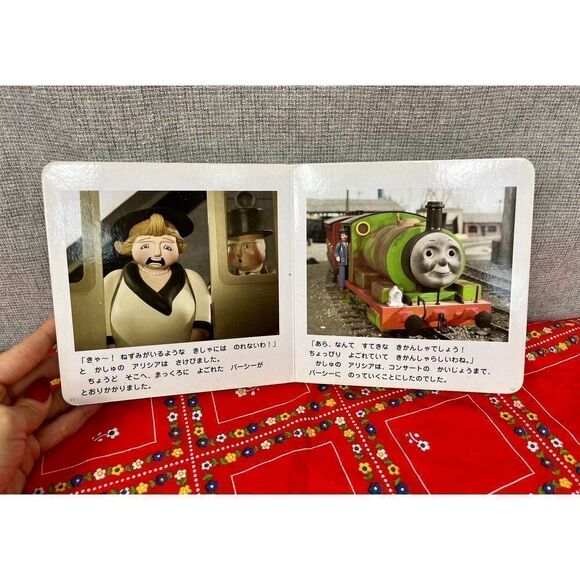 「きゃ～！ ねずみがいるような きしゃには のれないわ！」
と かしゅの アリシアは さけびました。
ちょうど そこへ、まっくろに よごれた パーシーが
とおりかかりました。
「あら、なんて すてきな きかんしゃでしょう！
ちょっぴり よごれていて きかんしゃらしいわね。」
かしゅの アリシアは、コンサートの かいじょうまで、
パーシーに のっていくことにしたのでした。